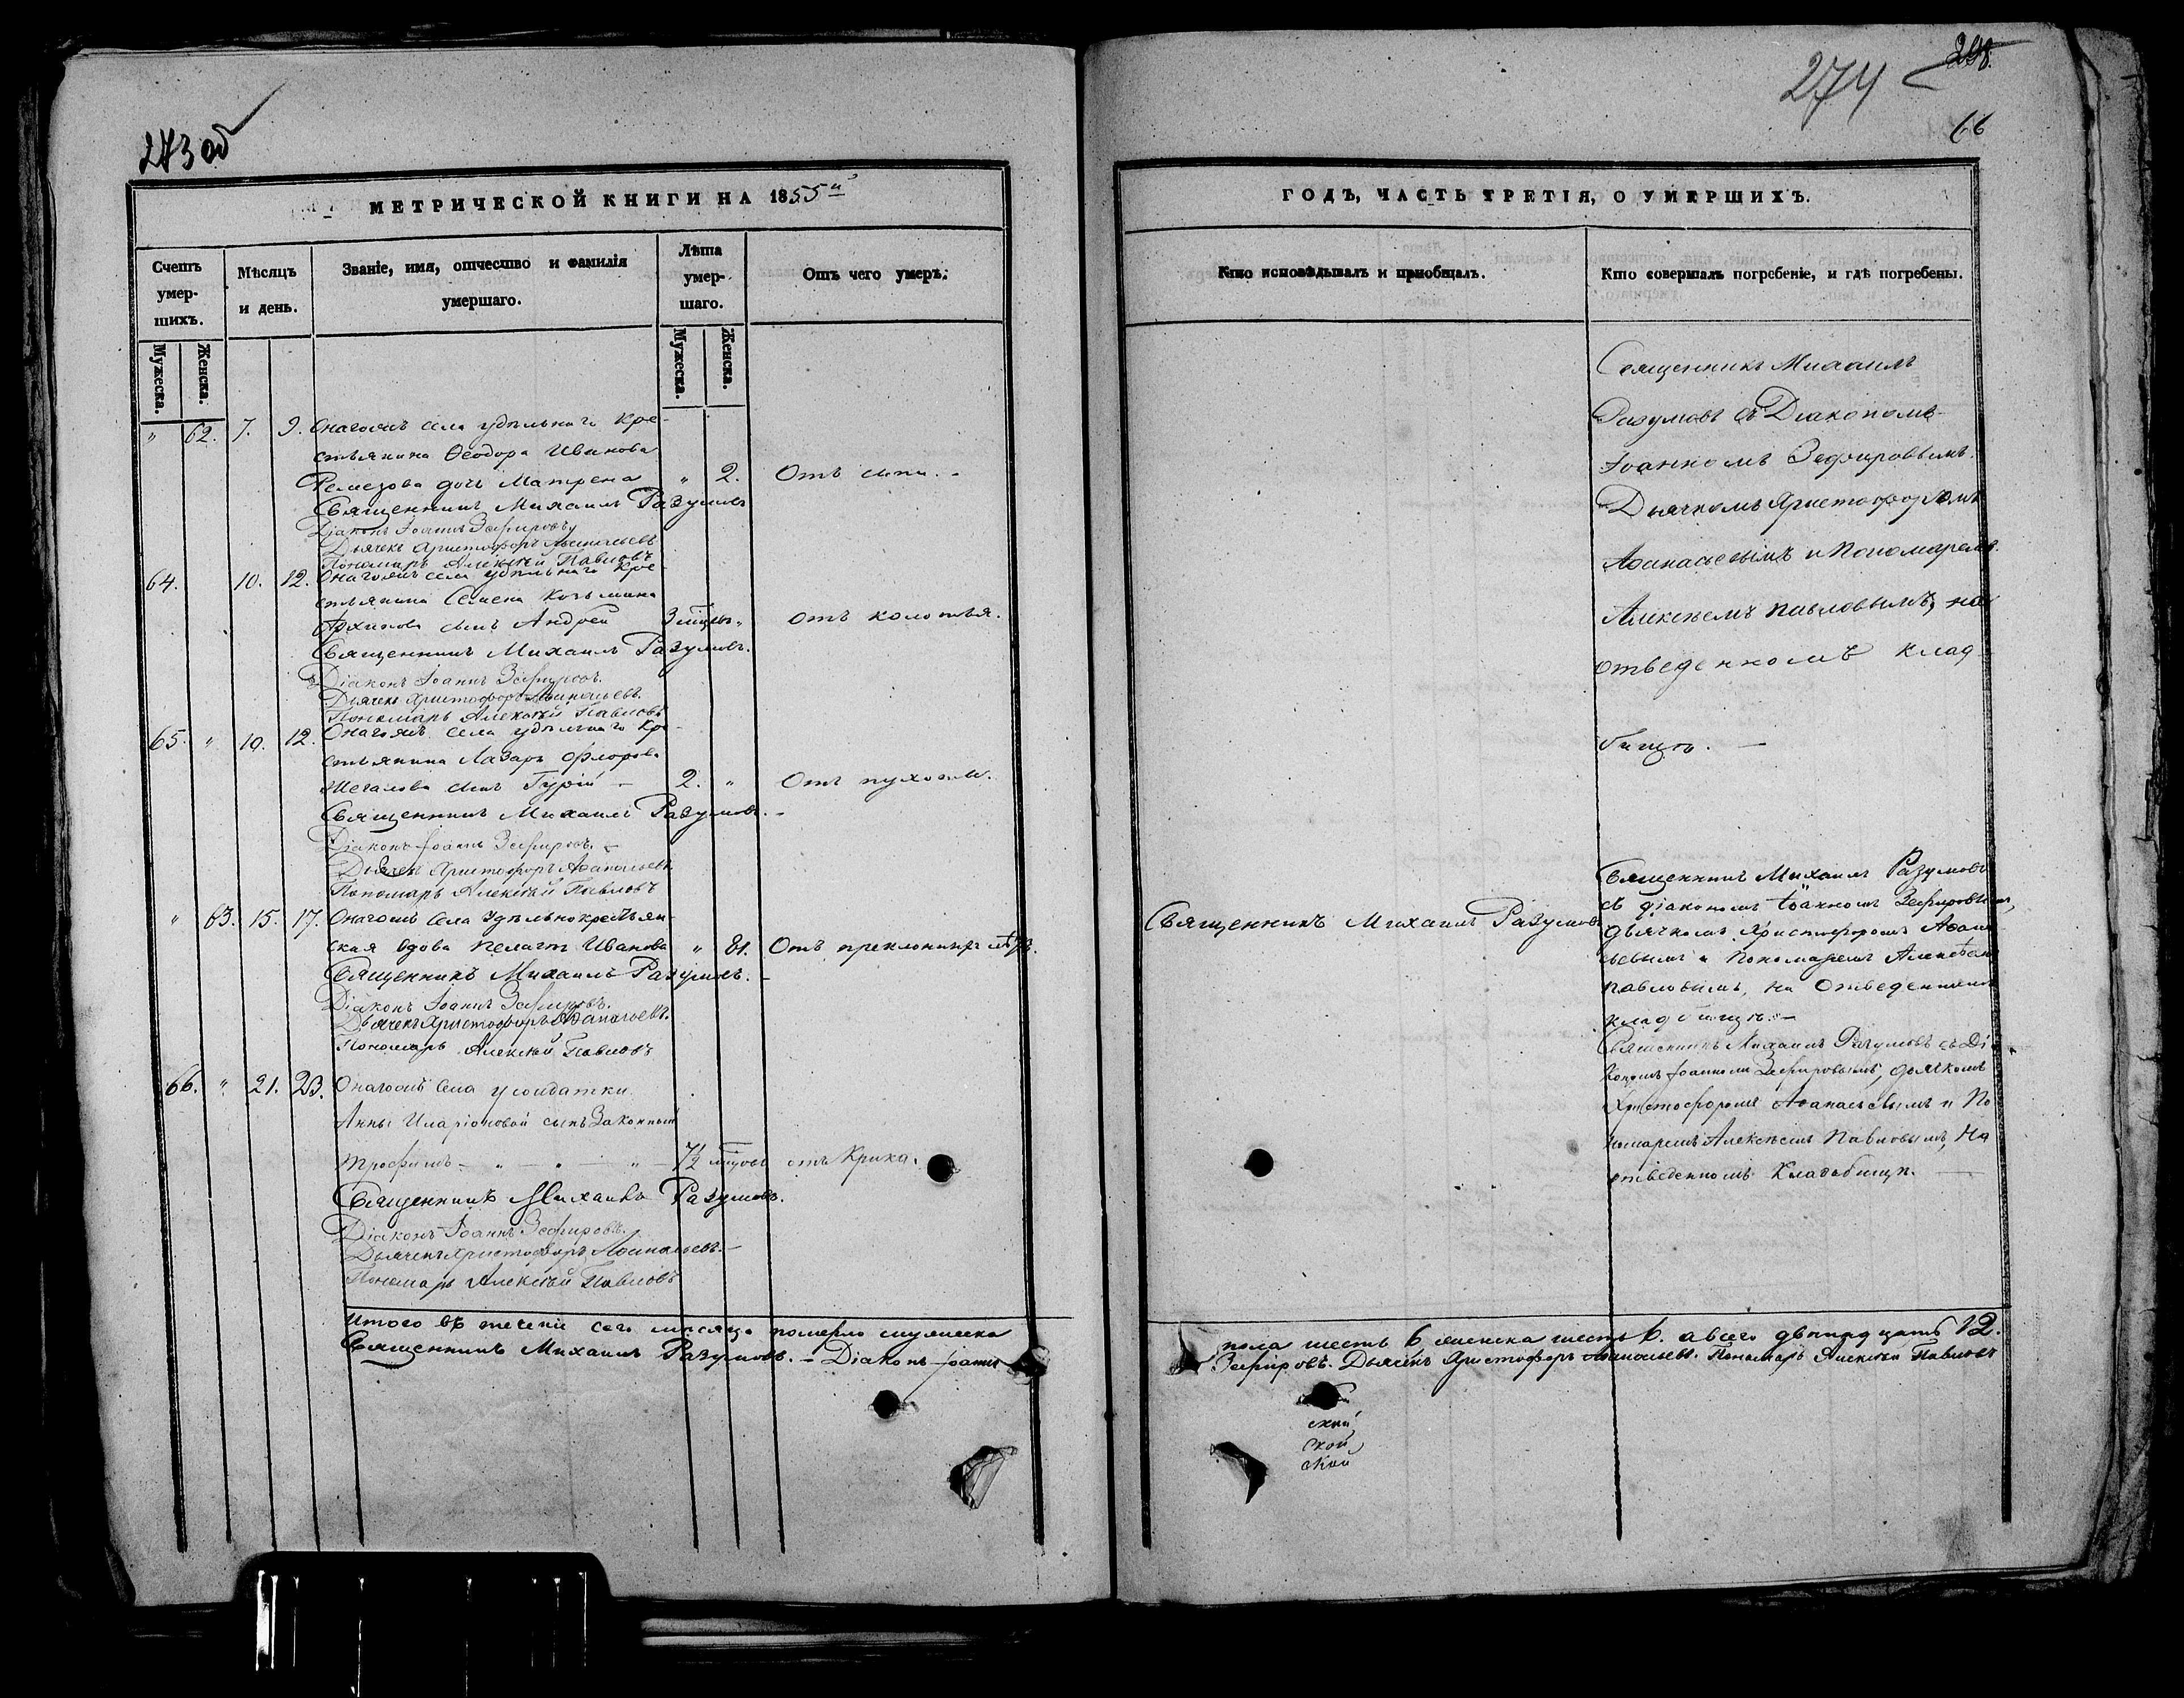 273 об
МЕТРИЧЕСКОЙ КНИГИ НА 1855й
Счетъ умершихъ.
Мѣсяцъ и день.
Званіе, имя, отчество и фамилія умершаго.
Лѣта умершаго.
Отъ чего умеръ.
Мужеска. Женска.
Мужеска. Женска.
" 62. 7. 9. Онагожъ села удѣльнаго кре-
стьянина Ѳеодора Иванова
Ремезова дочь Матрена " 2. Отъ
Священникъ Михаилъ Разумовъ
Діаконъ Іоаннъ Зефировъ
Дьячекъ Христофоръ Аѳанасьевъ
Пономарь Алексѣй Павловъ
64. 10. 12. Онагожъ села удѣльнаго кре-
стьянина Семена Козьмина
Архипова сынъ Андрей 3 мѣсяц. " отъ колотья.
Священникъ Михаилъ Разумовъ.
Діаконъ Іоаннъ Зефировъ.
Дьячекъ Христофоръ Аѳанасьевъ.
Пономарь Алексѣй Павловъ
65. " 10. 12. Онагожъ села удѣльнаго кре-
стьянина Лазаря Флорова
сынъ Гурій — 2. " Отъ
Священникъ Михаилъ Разумовъ. -
Діаконъ Іоаннъ Зефировъ. -
Дьячекъ Христофоръ Аѳанасьевъ
Пономарь Алексѣй Павловъ
" 63. 15. 17. Онагожъ села удѣльнокрестьян-
ская вдова Пелагія Иванова " 81. Отъ преклонныхъ лѣтъ.
Священникъ Михаилъ Разумовъ. -
Діаконъ Іоаннъ Зефировъ.
Дьячекъ Христофоръ Аѳанасьевъ.
Пономарь Алексѣй Павловъ
66. " 21. 23. Онагожъ села у солдатки
Анны Иларіоновой сынъ законный
Трофимъ - " - " - " - отъ крика.
Священникъ Михаилъ Разумовъ.
Діаконъ Іоаннъ Зефировъ.
Дьячекъ Христофоръ Аѳанасьевъ. -
Пономарь Алексѣй Павловъ
Итого въ теченіи сего мѣсяца померло мужеска
Священникъ Михаилъ Разумовъ. - Діаконъ Іоаннъ
274
66
ГОДЪ, ЧАСТЬ ТРЕТІЯ, О УМЕРШИХЪ.
Кто исповѣдывалъ и пріобщалъ.
Кто совершалъ погребеніе, и гдѣ погребены.
Священникъ Михаилъ
Разумовъ съ Діакономъ
Іоанномъ Зефировымъ.
Дьячкомъ Христофоромъ
Аѳанасьевымъ и Пономаремъ
Алексѣемъ Павловымъ, на
отведенномъ клад-
бищѣ. —
Священникъ Михаилъ Разумовъ
Священникъ Михаилъ Разумовъ
съ діакономъ Іоанномъ Зефировымъ,
дьячкомъ Христофоромъ Аѳана-
сьевымъ и Пономаремъ Алексѣемъ
Павловымъ, на отведенномъ
кладбищѣ. -
Священникъ Михаилъ Разумовъ съ Діа-
кономъ Іоанномъ Зефировымъ, дьячкомъ
Христофоромъ Аѳанасьевымъ и По-
номаремъ Алексѣемъ Павловымъ, на
отведенномъ кладбищѣ. —
пола шесть 6 женска шесть 6. а всего двѣнадцать 12.
Зефировъ. Дьячекъ Христофоръ Аѳанасьевъ. Пономарь Алексѣй Павловъ
ской
ской
ской